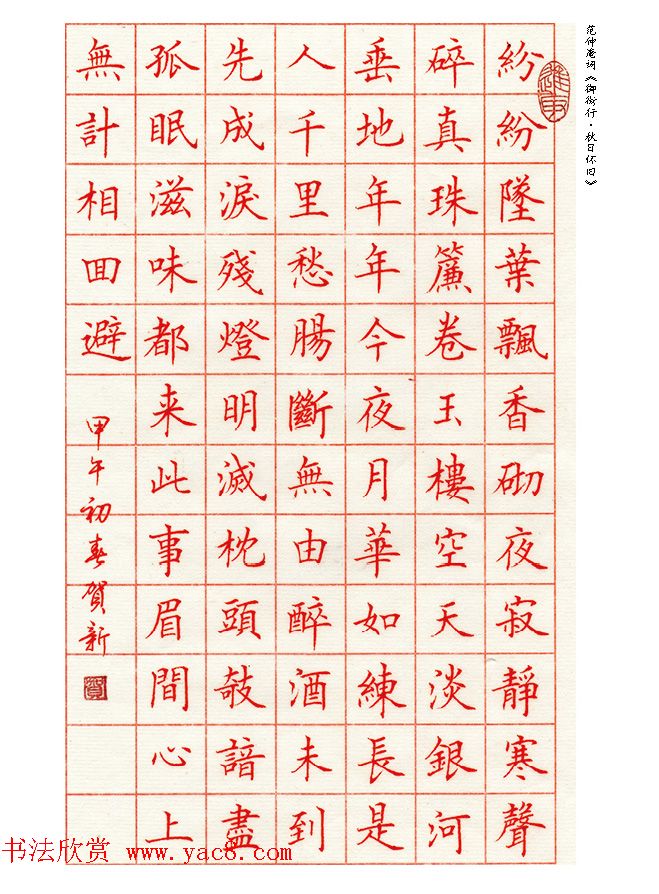 范仲淹词《御街行·秋日怀旧》
紛紛墜葉飄香砌夜寂靜寒聲
碎真珠簾卷玉樓空天淡銀河
垂地年年今夜月華如練長是
人千里愁腸斷無由醉酒未到
先成淚殘燈明滅枕頭敧諳盡
孤眠滋味都来此事眉間心上
無計相囬避
甲午初春賀新
书法欣赏 www.yac8.com